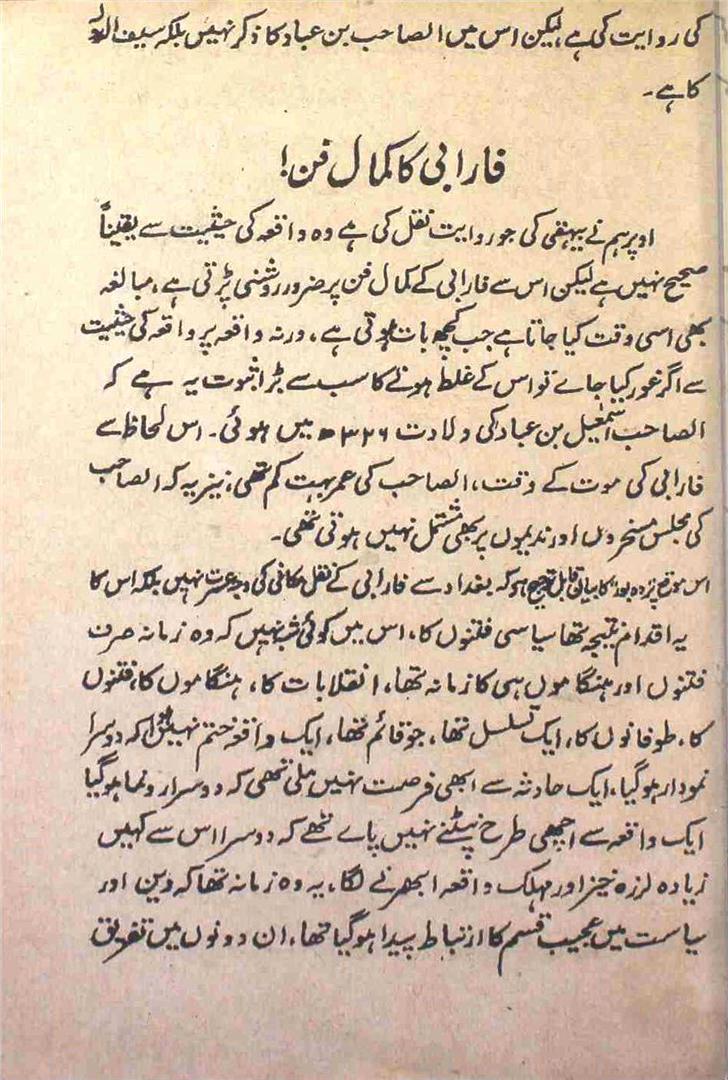 کی روایت کی ہے لیکن اس میں الصاحب بن عباد کا ذکر نہیں بلکہ سیف الدولہ
کا ہے۔
فارابی کا کمال فن!
اوپر ہم نے بیہقی کی جو روایت نقل کی ہے وہ واقعہ کی حیثیت سے یقیناً
صحیح نہیں ہے لیکن اس سے فارابی کے کمال فن پر ضرور روشنی پڑتی ہے، مبالغہ
بھی اسی وقت کیا جاتا ہے جب کچھ بات ہوتی ہے، ورنہ واقعہ پر واقعہ کی حیثیت
سے اگر غور کیا جائے تو اس کے غلط ہونے کا سب سے بڑا ثبوت یہ ہے کہ
الصاحب اسمٰعیل بن عباد کی ولادت ۳۲۶ھ میں ہوئی۔ اس لحاظ سے
فارابی کی موت کے وقت، الصاحب کی عمر بہت کم تھی، نیز یہ کہ الصاحب
کی مجلس مسخروں اور ندیموں پر بھی مشتمل نہیں ہوتی تھی۔
اس موقع پر کا بیان قابل ترجیح ہو کہ بغداد سے فارابی کے نقل مکانی کی وجہ عسرت نہیں بلکہ اس کا
یہ اقدام نتیجہ تھا سیاسی فتنوں کا، اس میں کوئی شبہ نہیں کہ وہ زمانہ صرف
فتنوں اور ہنگاموں ہی کا زمانہ تھا، انقلابات کا، ہنگاموں کا، فتنوں
کا، طوفانوں کا، ایک تسلسل تھا، جو قائم تھا، ایک واقعہ ختم نہیں ہوا کہ دوسرا
نمودار ہو گیا، ایک حادثہ سے ابھی فرصت نہیں ملی تھی کہ دوسرا رونما ہو گیا
ایک واقعہ سے اچھی طرح نپٹنے نہیں پائے تھے کہ دوسرا اس سے کہیں
زیادہ لرزہ خیز اور مہلک واقعہ ابھرنے لگا، یہ وہ زمانہ تھا کہ دین اور
سیاست میں عجیب قسم کا ارتباط پیدا ہو گیا تھا، ان دونوں میں تفریق